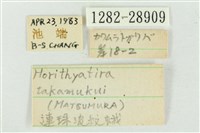 APR 23, 1983
池端
B-S CHANG
1282-28909
カワムラトガリバ
巻18-2
Horithyatira
takamukui
(MATSUMURA)
連珠波紋蛾